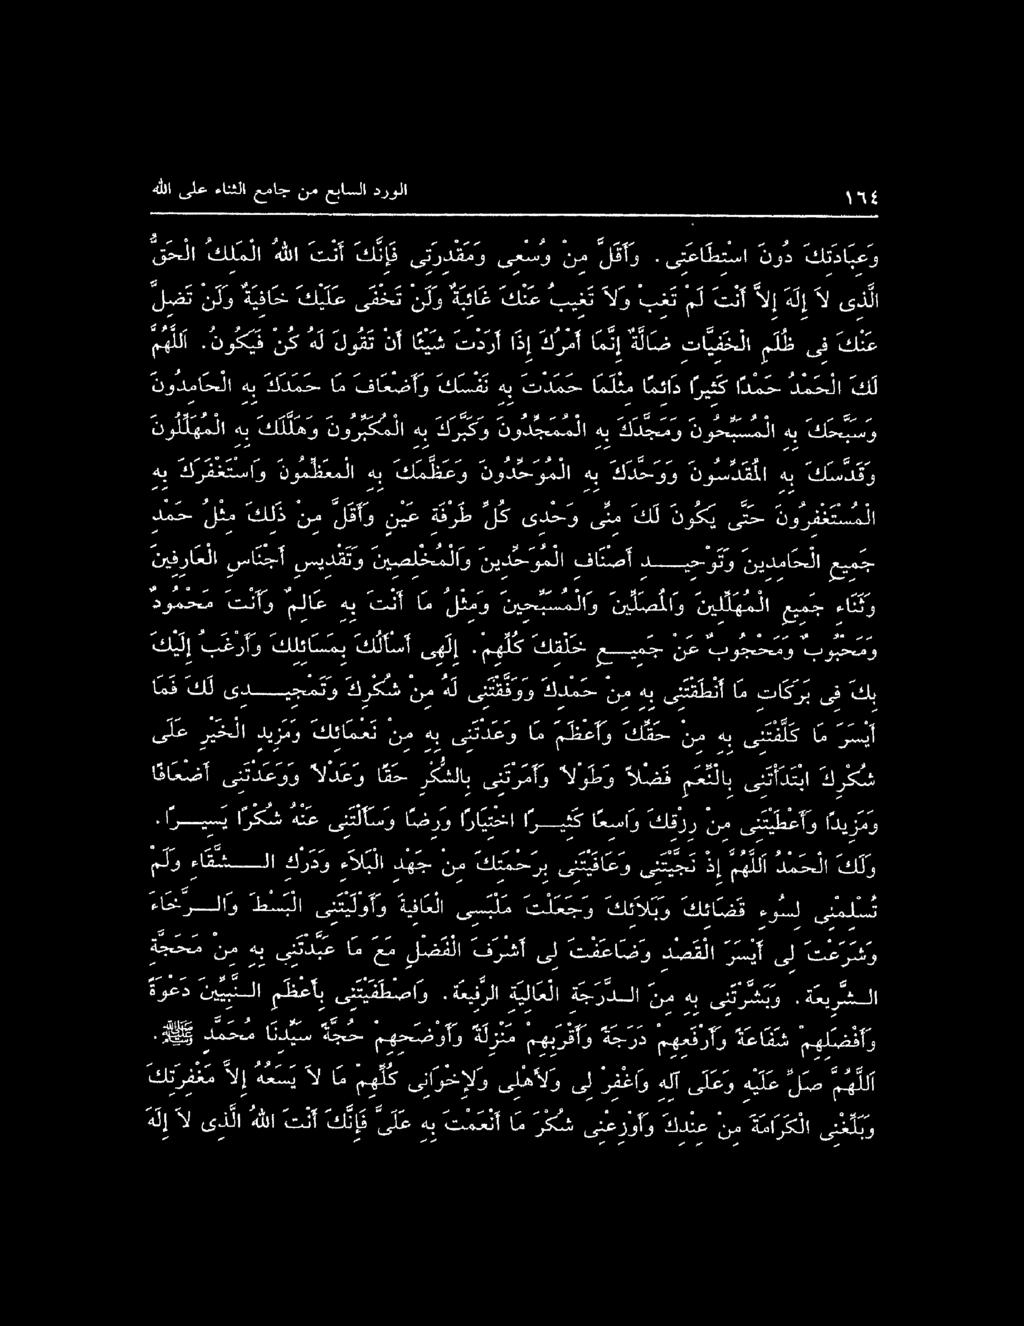 ١٦٤ الورد السابع من جامع الثناء على الله
وَعِبَادَتِكَ دُونَ اسْتِطَاعَتِى. وَأَقَلَّ مِنْ وُسْعِى وَمَقْدِرَتِى فَإِنَّكَ أَنْتَ اللهُ الْمَلِكُ الْحَقُّ
الَّذِى لاَ إِلَهَ إِلاَّ أَنْتَ لَمْ تَغِبْ وَلاَ تَغِيبُ عَنْكَ غَائِبَةٌ وَلَنْ تَخْفَى عَلَيْكَ خَافِيَةٌ وَلَنْ تَضِلَّ
عَنْكَ فِى ظُلَمِ الْخَفِيَّاتِ ضَالَّةٌ إِنَّمَا أَمْرُكَ إِذَا أَرَدْتَ شَيْئًا أَنْ تَقُولَ لَهُ كُنْ فَيَكُونُ. اَللَّهُمَّ
لَكَ الْحَمْدُ حَمْدًا كَثِيرًا دَائِمًا مِثْلَمَا حَمِدْتَ بِهِ نَفْسَكَ وَأَضْعَافَ مَا حَمِدَكَ بِهِ الْحَامِدُونَ
وَسَبَّحَكَ بِهِ الْمُسَبِّحُونَ وَمَجَّدَكَ بِهِ الْمُمَجِّدُونَ وَكَبَّرَكَ بِهِ الْمُكَبِّرُونَ وَهَلَّلَكَ بِهِ الْمُهَلِّلُونَ
وَقَدَّسَكَ بِهِ الْمُقَدِّسُونَ وَوَحَّدَكَ بِهِ الْمُوَحِّدُونَ وَعَظَّمَكَ بِهِ الْمُعَظِّمُونَ وَاسْتَغْفَرَكَ بِهِ
الْمُسْتَغْفِرُونَ حَتَّى يَكُونَ لَكَ مِنِّى وَحْدِى كُلِّ طَرْفَةِ عَيْنٍ وَأَقَلَّ مِنْ ذَلِكَ مِثْلُ حَمْدِ
جَمِيعِ الْحَامِدِينَ وَتَوْحِيـــدِ أَصْنَافِ الْمُوَحِّدِينَ وَالْمُخْلِصِينَ وَتَقْدِيسِ أَجْنَاسِ الْعَارِفِينَ
وَثَنَاءِ جَمِيعِ الْمُهَلِّلِينَ وَالْمُصَلِّينَ وَالْمُسَبِّحِينَ وَمِثْلُ مَا أَنْتَ بِهِ عَالِمٌ وَأَنْتَ مَحْمُودٌ
وَمَحْبُوبٌ وَمَحْجُوبٌ عَنْ جَمِيـــعِ خَلْقِكَ كُلِّهِمْ. إِلَهِى أَسْأَلُكَ بِمَسَائِلِكَ وَأَرْغَبُ إِلَيْكَ
بِكَ فِى بَرَكَاتِ مَا أَنْطَقْتَنِى بِهِ مِنْ حَمْدِكَ وَوَفَّقْتَنِى لَهُ مِنْ شُكْرِكَ وَتَمْجِيـــدِى لَكَ فَمَا
أَيْسَرَ مَا كَلَّفْتَنِى بِهِ مِنْ حَقِّكَ وَأَعْظَمَ مَا وَعَدْتَنِى بِهِ مِنْ نَعْمَائِكَ وَمَزِيدِ الْخَيْرِ عَلَى
شُكْرِكَ ابْتَدَأْتَنِى بِالنِّعَمِ فَضْلاً وَطَوْلاً وَأَمَرْتَنِى بِالشُّكْرِ حَقًّا وَعَدْلاً وَوَعَدْتَنِى أَضْعَافًا
وَمَزِيدًا وَأَعْطَيْتَنِى مِنْ رِزْقِكَ وَاسِعًا كَثِيـــرًا اخْتِيَارًا وَرِضًا وَسَأَلْتَنِى عَنْهُ شُكْرًا يَسِيـــرًا.
وَلَكَ الْحَمْدُ اَللَّهُمَّ إِذْ نَجَّيْتَنِى وَعَافَيْتَنِى بِرَحْمَتِكَ مِنْ جَهْدِ الْبَلاَءِ وَدَرْكِ الـــشَّقَاءِ وَلَمْ
تُسْلِمْنِى لِسُوءِ قَضَائِكَ وَبَلاَئِكَ وَجَعَلْتَ مَلْبَسِى الْعَافِيَةَ وَأَوْلَيْتَنِى الْبَسْطَ وَالـــرَّخَاءَ
وَشَرَعْتَ لِى أَيْسَرَ الْقَصْدِ وَضَاعَفْتَ لِى أَشْرَفَ الْفَضْلِ مَعَ مَا عَبَّدْتَنِى بِهِ مِنْ مَحَجَّةِ
الـشَّرِيعَةِ. وَبَشَّرْتَنِى بِهِ مِنَ الـدَّرَجَةِ الْعَالِيَةِ الرَّفِيعَةِ. وَاصْطَفَيْتَنِى بِأَعْظَمِ الـنَّبِيِّينَ دَعْوَةً
وَأَفْضَلِهِمْ شَفَاعَةً وَأَرْفَعِهِمْ دَرَجَةً وَأَقْرَبِهِمْ مَنْزِلَةً وَأَوْضَحِهِمْ حُجَّةً سَيِّدِنَا مُحَمَّدٍ ﷺ.
اَللَّهُمَّ صَلِّ عَلَيْهِ وَعَلَى آلِهِ وَاغْفِرْ لِى وَلأَهْلِى وَلإِخْوَانِى كُلِّهِمْ مَا لاَ يَسَعُهُ إِلاَّ مَغْفِرَتُكَ
وَبَلِّغْنِى الْكَرَامَةَ مِنْ عِنْدِكَ وَأَوْزِعْنِى شُكْرَ مَا أَنْعَمْتَ بِهِ عَلَىَّ فَإِنَّكَ أَنْتَ اللهُ الَّذِى لاَ إِلَهَ